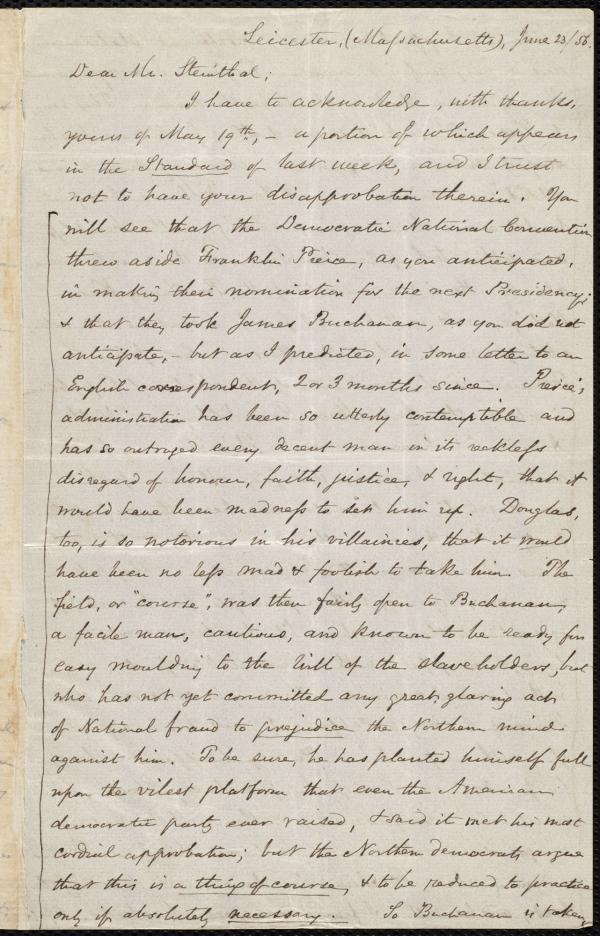 Leicester, (Massachusetts), June 23/56.
Dear Mr. Steinthal;
I have to acknowledge, with thanks,
yours of May 19th, – a portion of which appears
in the Standard of last week, and I trust
not to have your disapprobation therein. You
will see that the Democratic National Convention
threw aside Franklin Peirce, as you anticipated,
in making their nomination for the next Presidency;
& that they took James Buchanan, as you did not
anticipate, – but as I predicted, in some letter to an
English correspondent, 2 or 3 months since. Peirce's
administration has been so utterly contemptible and
has so outraged every decent man in its reckless
disregard of honour, faith, justice, & right, that it
would have been madness to set him up. Douglas,
too, is so notorious in his villainies, that it would
have been no less mad & foolish to take him. The
field, or "course", was then fairly open to Buchanan,
a facile man, cautious, and known to be ready for
easy moulding to the will of the slaveholders, but
who has not yet committed any great, glaring act
of National fraud to prejudice the Northern mind
against him. To be sure, he has planted himself full
upon the vilest platform that even the American
democratic party ever raised, & said it met his most
cordial approbation; but the Northern democrats argue
that this is a thing of course, & to be reduced to practice
only if absolutely necessary. – So Buchanan is taken,